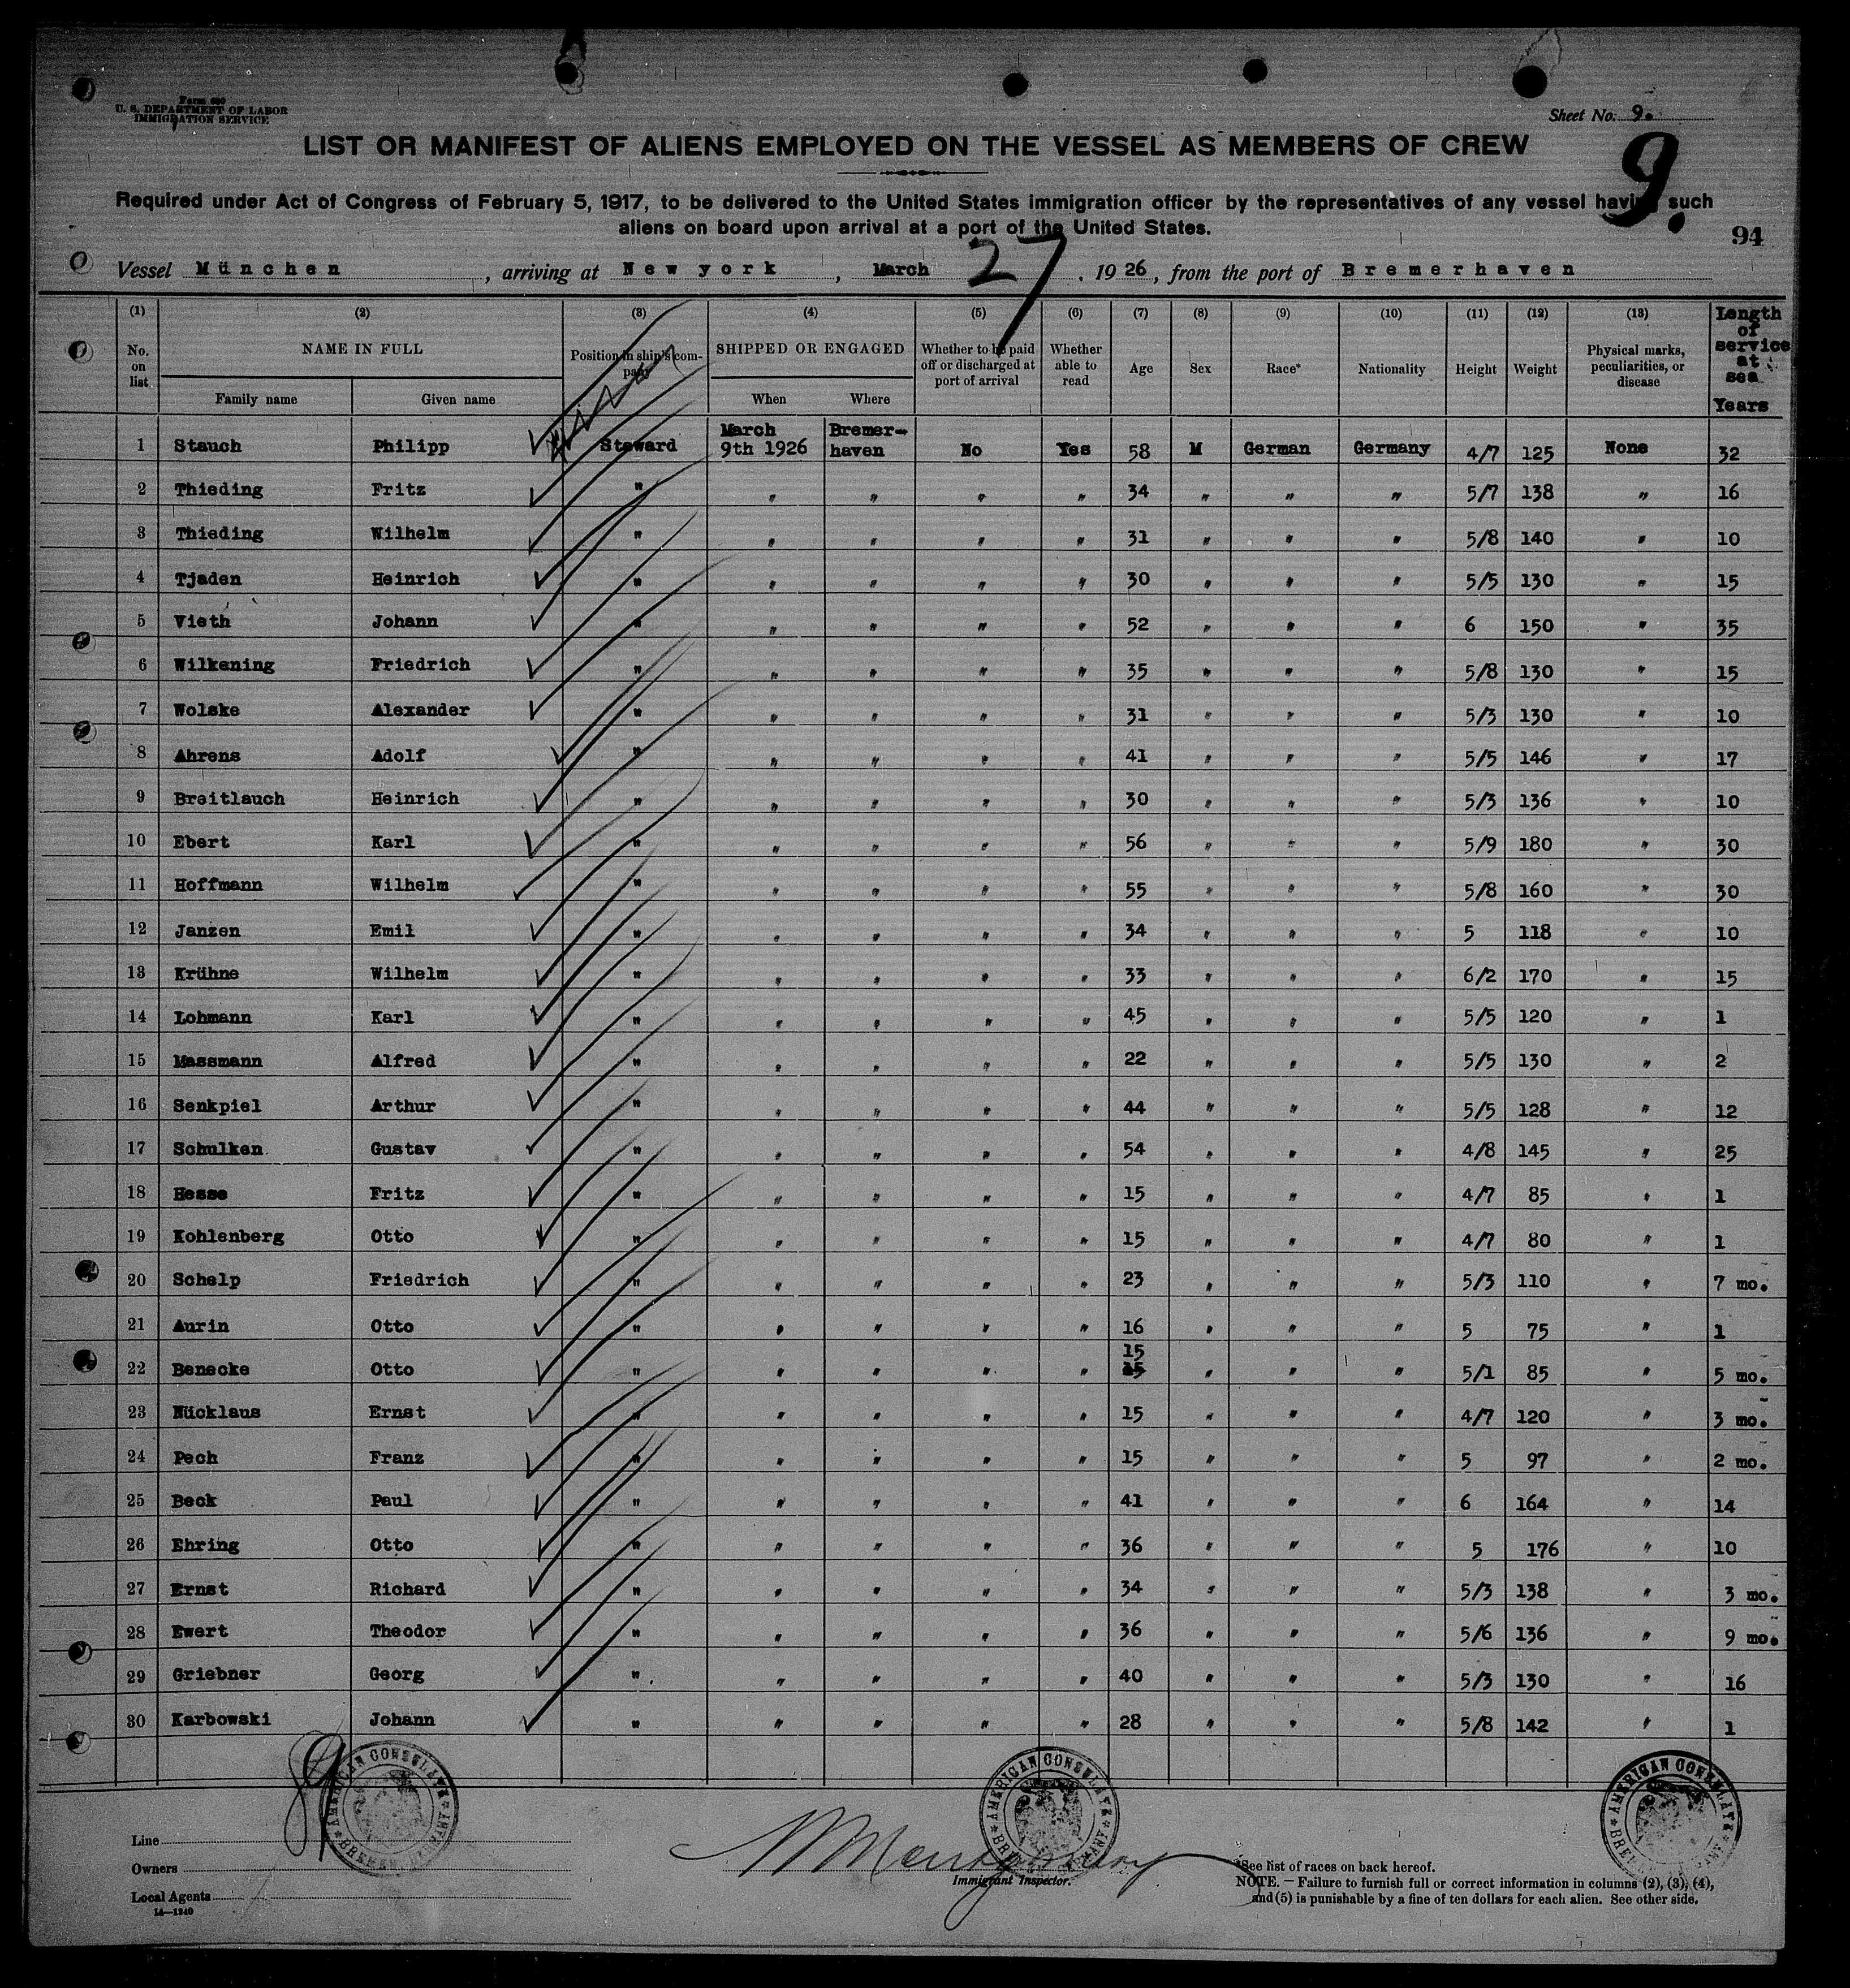 Form 680
U. S. DEPARTMENT OF LABOR
IMMIGRATION SERVICE
Sheet No. 9.
LIST OR MANIFEST OF ALIENS EMPLOYED ON THE VESSEL AS MEMBERS OF CREW
9.
Required under Act of Congress of February 5, 1917, to be delivered to the United States immigration officer by the representatives of any vessel having such
aliens on board upon arrival at a port of the United States.
94
Vessel München, arriving at New york, March 27, 1926, from the port of Bremerhaven
(1) (2) (3) (4) (5) (6) (7) (8) (9) (10) (11) (12) (13) Length of service at sea Years
No. on list NAME IN FULL Position in ship's company SHIPPED OR ENGAGED Whether to be paid off or discharged at port of arrival Whether able to read Age Sex Race* Nationality Height Weight Physical marks, peculiarities, or disease
Family name Given name When Where
1 Stauch Philipp Steward March 9th 1926 Bremer-haven No Yes 58 M German Germany 4/7 125 None 32
2 Thieding Fritz " " " " " 34 " " " 5/7 138 " 16
3 Thieding Wilhelm " " " " " 31 " " " 5/8 140 " 10
4 Tjaden Heinrich " " " " " 30 " " " 5/5 130 " 15
5 Vieth Johann " " " " " 52 " " " 6 150 " 35
6 Wilkening Friedrich " " " " " 35 " " " 5/8 130 " 15
7 Wolske Alexander " " " " " 31 " " " 5/3 130 " 10
8 Ahrens Adolf " " " " " 41 " " " 5/5 146 " 17
9 Breitlauch Heinrich " " " " " 30 " " " 5/3 136 " 10
10 Ebert Karl " " " " " 56 " " " 5/9 180 " 30
11 Hoffmann Wilhelm " " " " " 55 " " " 5/8 160 " 30
12 Janzen Emil " " " " " 34 " " " 5 118 " 10
13 Krühne Wilhelm " " " " " 33 " " " 6/2 170 " 15
14 Lohmann Karl " " " " " 45 " " " 5/5 120 " 1
15 Massmann Alfred " " " " " 22 " " " 5/5 130 " 2
16 Senkpiel Arthur " " " " " 44 " " " 5/5 128 " 12
17 Schulken Gustav " " " " " 54 " " " 4/8 145 " 25
18 Hesse Fritz " " " " " 15 " " " 4/7 85 " 1
19 Kohlenberg Otto " " " " " 15 " " " 4/7 80 " 1
20 Schelp Friedrich " " " " " 23 " " " 5/3 110 " 7 mo.
21 Aurin Otto " " " " " 16 " " " 5 75 " 1
22 Benecke Otto " " " " " 15 " " " 5/1 85 " 5 mo.
23 Nücklaus Ernst " " " " " 15 " " " 4/7 120 " 3 mo.
24 Pech Franz " " " " " 15 " " " 5 97 " 2 mo.
25 Beck Paul " " " " " 41 " " " 6 164 " 14
26 Ehring Otto " " " " " 36 " " " 5 176 " 10
27 Ernst Richard " " " " " 34 " " " 5/3 138 " 3 mo.
28 Ewert Theodor " " " " " 36 " " " 5/6 136 " 9 mo.
29 Griebner Georg " " " " " 40 " " " 5/3 130 " 16
30 Karbowski Johann " " " " " 28 " " " 5/8 142 " 1
89
AMERICAN CONSULATE
AMERICAN CONSULATE
AMERICAN CONSULATE
Line
Owners
Local Agents
14—1240
Montgomery
Immigrant Inspector.
*See list of races on back hereof.
NOTE. — Failure to furnish full or correct information in columns (2), (3), (4),
and (5) is punishable by a fine of ten dollars for each alien. See other side.